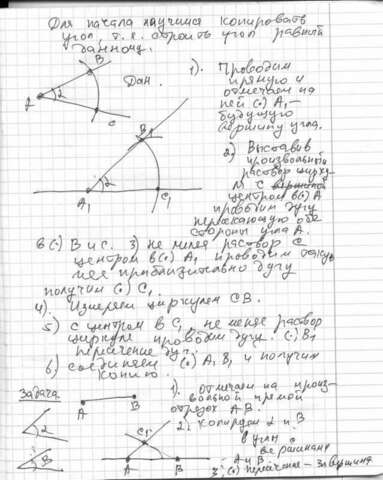 Для начала научимся копировать
угол, т.е. строить угол равный
данному.
B
A
α
C
Дан.
1). Проводим
прямую и
отмечаем на
ней (·) A₁ –
будущую
вершину угла.
2) Выставив
произвольный
раствор цирку
ля с вершиной
центром в (·) A
проводим дугу
пересекающую обе
стороны угла A.
B₁
A₁
α
C₁
в (·) B и C. 3) не меняя раствор с
центром в (·) A₁ проводим таку
же приблизительно дугу
получим (·) C₁.
4). Измеряем циркулем CB.
5) с центром в C₁ не меняя раствор
циркуля проводим дугу. (·) B₁
пересечение дуг.
6) соединяем (·) A₁ B₁ и получим
копию.
Задача.
A B
1). отмечаем на произ-
вольной прямой
отрезок AB.
2. Копируем α и B
в углы с
вершинами
A и B.
3. (·) пересечение – 3 вершина
α
B
C
A B